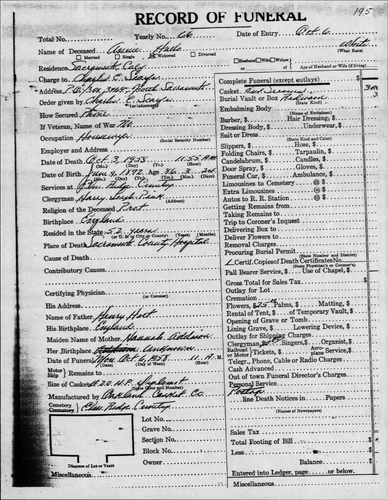 195
RECORD OF FUNERAL
Total No. Yearly No. 66 Date of Entry Oct 6
Name of Deceased Annie Halls White
Married Single Widowed Divorced Husband Wife Widow (What Race)
Residence Sacramento Calif Age of Husband or Wife (if living)
Charge to Charles E. Scayes
Complete Funeral (except outlays)
Address P.O. Box 3465 North Sacramento
Casket
Order given by Charles E. Scayes
Burial Vault or Box
(State Kind)
How Secured
Embalming Body
(Name of Embalmer)
If Veteran, Name of War No
Barber, Hair Dressing,
Occupation Housewife
Dressing Body, Underwear,
Suit or Dress
(State Kind and Color)
Employer and Address
Slippers, Hose,
Date of Death Oct. 3, 1958 11:55 AM
Folding Chairs, Tarpaulin,
Date of Birth June 1, 1892
Candelabrum, Candles,
Services at Glen Ridge Cemetery
Door Spray, Gloves,
Funeral Car, Ambulance,
Clergyman Harry
Limousines to Cemetery @
Religion of the Deceased Prot.
Extra Limousines @
Birthplace England
Autos to R. R. Station @
Getting Remains from
Resided in the State 52 years
Taking Remains to
(or U. S. or City or County)
Trip to Coroner's Inquest
Place of Death Sacramento County Hospital
Delivering Box to
Deliver Flowers to
Cause of Death
Removal Charges
Procuring Burial Permit
(State Number and District)
Contributory Causes
Certif. Copies of Death Certificate No.
Pall Bearer Service, Use of Chapel,
Certifying Physician
(or Coroner)
Gross Total for Sales Tax
Outlay for Lot
His Address
Cremation
Name of Father Henry Hort
Flowers $25 Palms, Matting,
His Birthplace England
Rental of Tent, of Temporary Vault,
Opening of Grave or Tomb
Maiden Name of Mother Hannah Addison
Lining Grave, Lowering Device,
Her Birthplace Unknown
Outlay for Shipping Charges
Date of Funeral Mon Oct 6 1958 11 A.M.
Clergyman Singers, Organist,
Motor Ship Remains to
Railroad Tickets, Aeroplane Service,
Telegr., Phone, Cable or Radio Charges
Cash Advanced
Size of Casket
Out of town Funeral Director's Charges
Personal Service
Manufactured by Oakland Casket Co.
line Death Notices in Papers
(Names of Newspapers)
Cemetery Crematory Glen Ridge Cemetery
Lot No.
Grave No.
Sales Tax
Section No.
Total Footing of Bill
Block No.
Less
Owner
Balance
Diagram of Lot or Vault
Entered into Ledger, page or below.
Miscellaneous
Miscellaneous